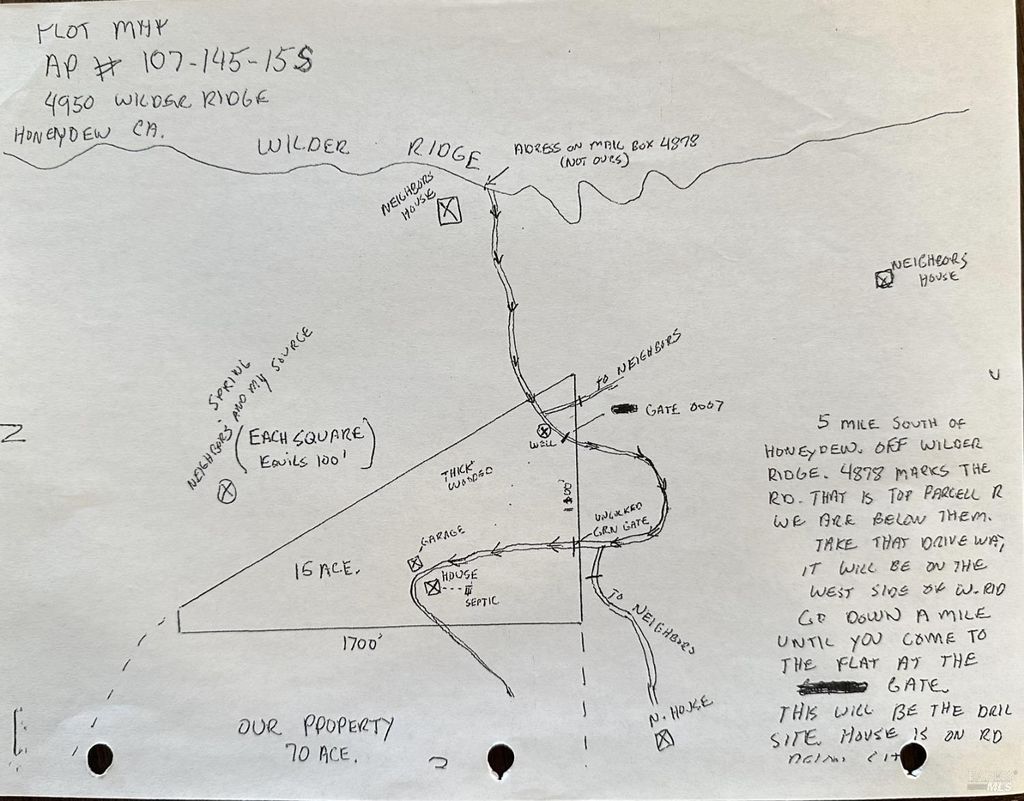 PLOT MAP
AP # 107-145-15S
4950 WILDER RIDGE
HONEYDEW CA.
WILDER RIDGE
ADRESS ON MAIL BOX 4878
(NOT OURS)
NEIGHBORS
HOUSE
NEIGHBORS
HOUSE
TO NEIGHBORS
GATE 0007
WELL
NEIGHBORS' SPRING
AND MY SOURCE
(EACH SQUARE
EQUILS 100')
THICK
WOODED
UNLOCKED
GRN GATE
GARAGE
HOUSE
SEPTIC
15 ACE.
TO NEIGHBORS
1700'
N. HOUSE
OUR PROPERTY
70 ACE.
5 MILE SOUTH OF
HONEYDEW. OFF WILDER
RIDGE. 4878 MARKS THE
RD. THAT IS TOP PARCELL R
WE ARE BELOW THEM.
TAKE THAT DRIVE WAY,
IT WILL BE ON THE
WEST SIDE OF W. RID
GO DOWN A MILE
UNTIL YOU COME TO
THE FLAT AT THE
GATE.
THIS WILL BE THE DRIL
SITE. HOUSE IS ON RD
MLS